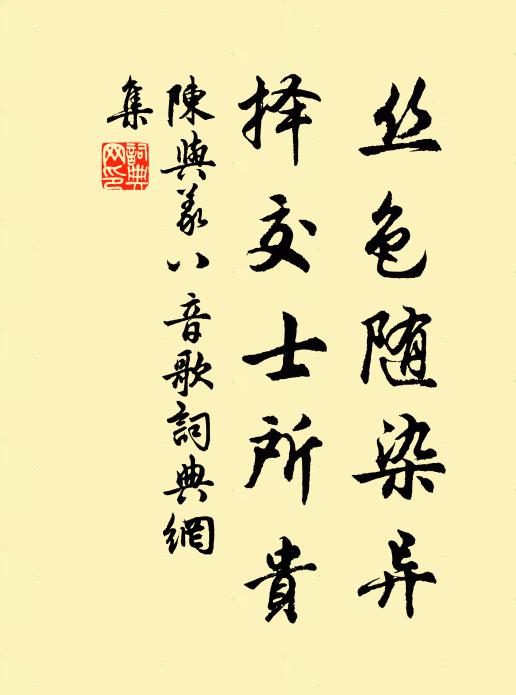 丝色随染异
择交士所貴
陳與義八音歌詞典網
集
詞典
网印